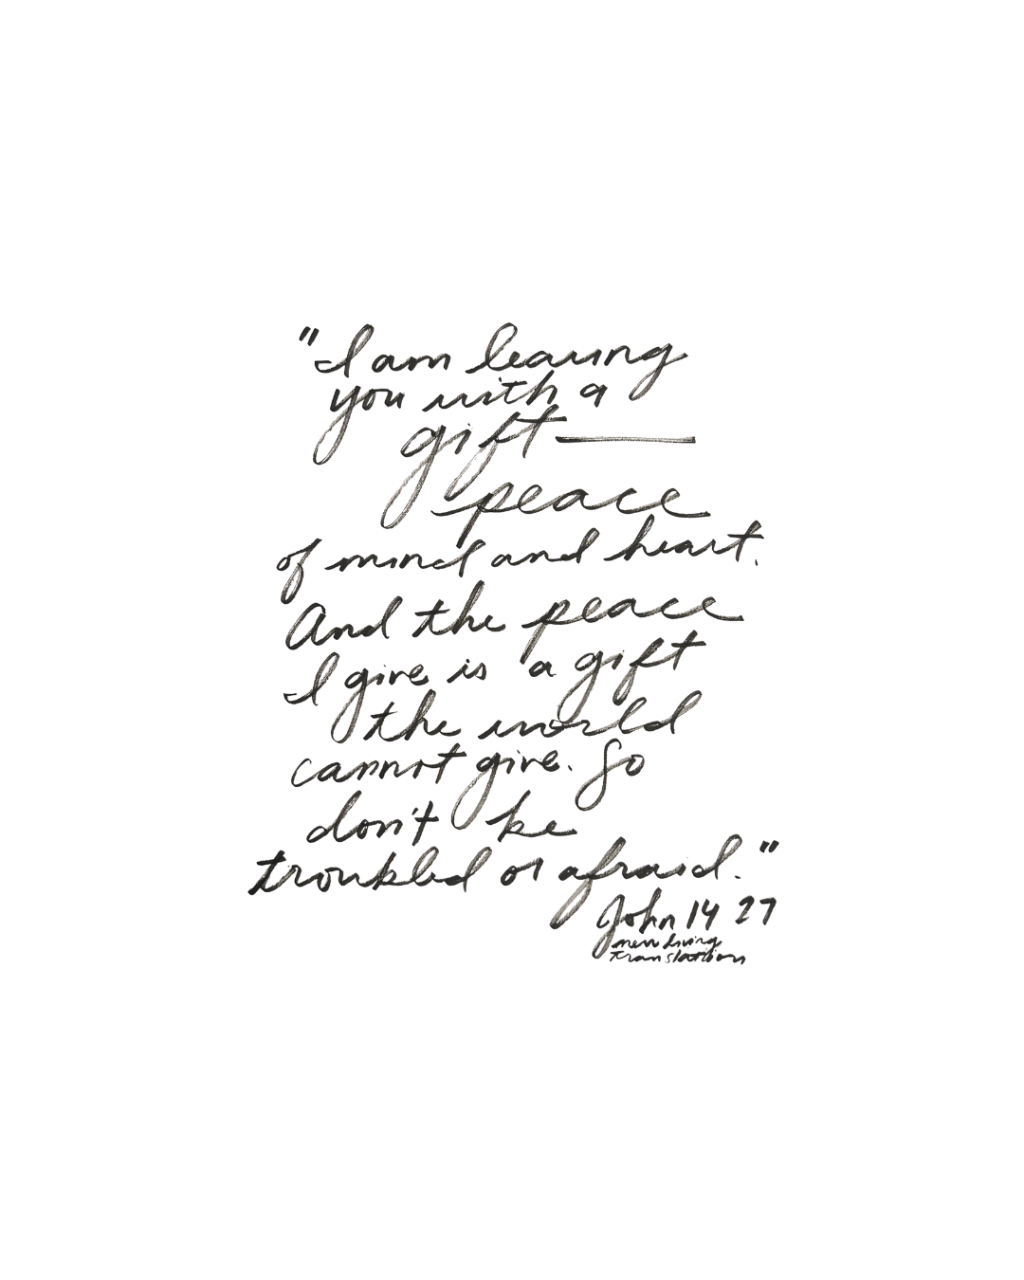 "I am leaving
you with a
gift—
peace
of mind and heart.
And the peace
I give is a gift
the world
cannot give. So
don't be
troubled or afraid."
John 14 27
new living
translation